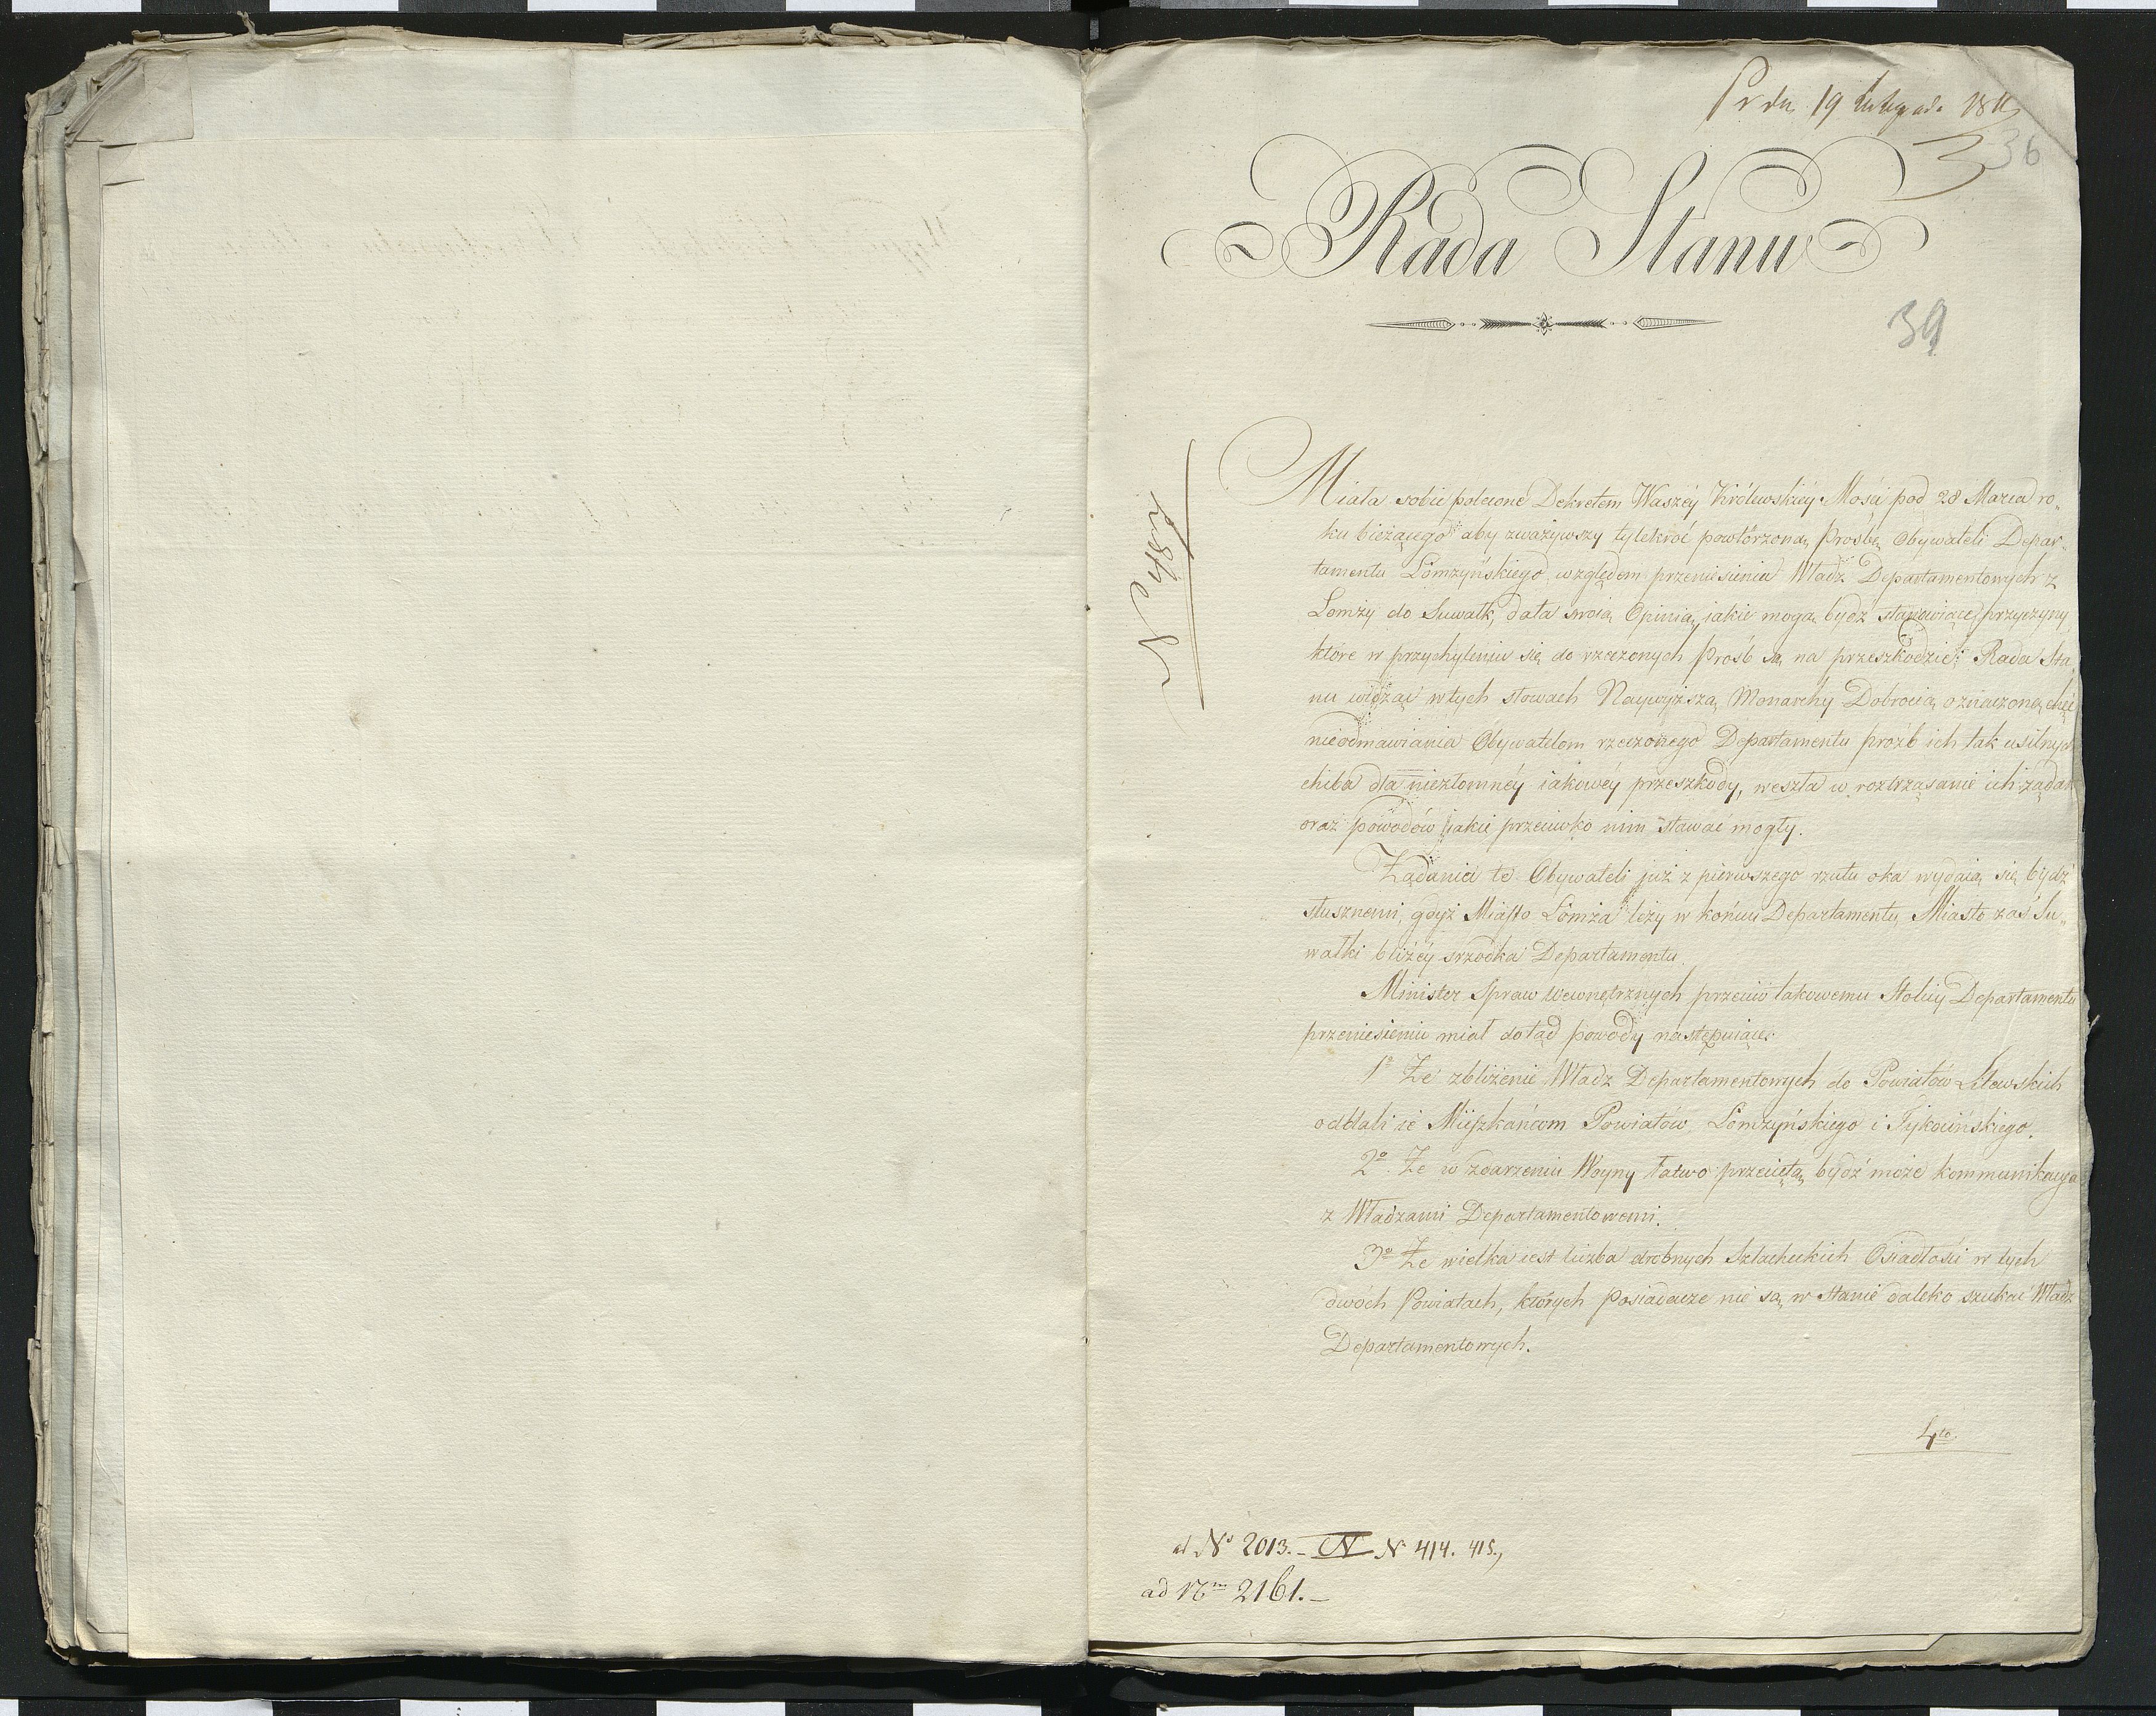 Pr dn 19 Listopada 1811
3
36
Rada Stanu
39
Miała sobie polecone Dekretem Waszéy Królewskiéy Mości pod 28 Marca ro„
ku bieżącego aby zważywszy tylekroć powtórzoną Prośbę Obywateli Depar„
tamentu Łomżyńskiego, względem przeniesienia Władz Departamentowych z
Łomży do Suwałk, dała swoią Opinią, iakie mogą bydź stanowiące przyczyny,
które w przychyleniu się do rzeczonych Prośb są na przeszkodzie; Rada Sta„
nu widząc w tych słowach Naywyższą Monarchy Dobrocią oznaczoną chęć
nieodmawiania Obywatelom rzeczonego Departamentu próżb ich tak usilnych
chiba dla niezłomnéy iakowéy przeszkody, weszła w roztrząsanie ich żądań
oraz powodów iakie przeciwko nim stawać mogły.
Żądania te Obywateli już z piérwszego rzutu oka wydaią się bydź
słusznemi, gdyż Miasto Łomża leży w końcu Departamentu, Miasto zaś Su„
wałki bliżéy srzódka Departamentu.
Minister Spraw Wewnętrznych przeciw takowemu Stolicy Departamentu
przeniesieniu miał dotąd powody następuiące:
1º Że zbliżenie Władz Departamentowych do Powiatów Litewskich
oddali ie Mieszkańcom Powiatów Łomżyńskiego i Tykocińskiego.
2º. Że w zdarzeniu Woyny łatwo przeciętą bydź może kommunikacya
z Władzami Departamentowemi.
3º Że wielka iest liczba drobnych Szlacheckich Osiadłości w tych
dwóch Powiatach, których Posiadacze nie są w stanie daleko szukać Władz
Departamentowych.
4to
ad Nº 2013. - N N 414. 415.,
ad Nm 2161. -